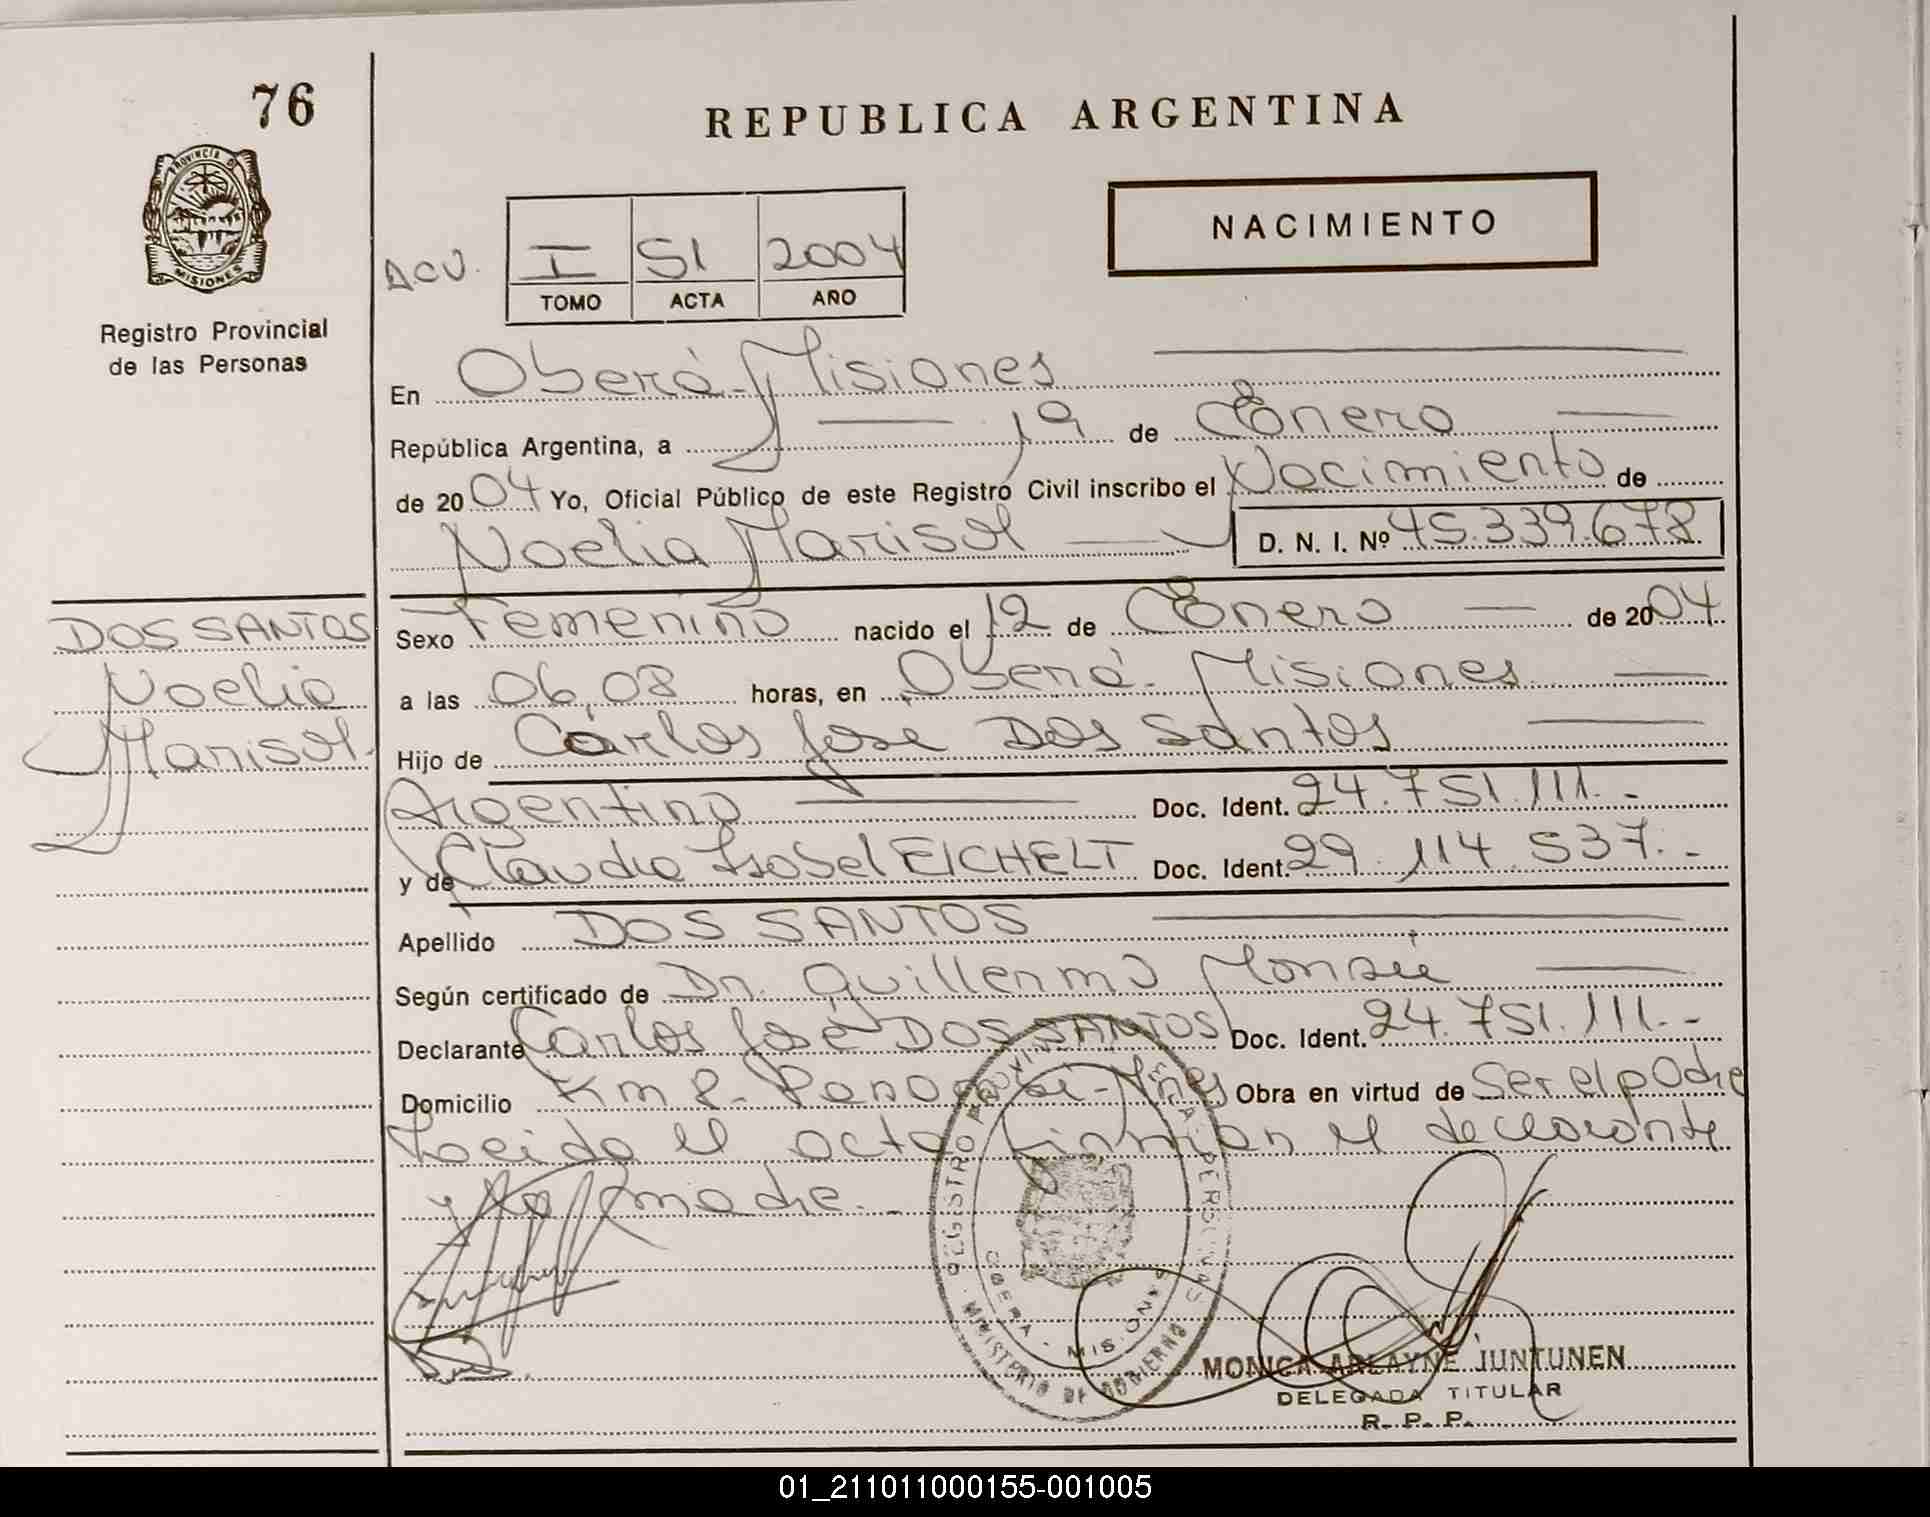 76
REPUBLICA ARGENTINA
PROVINCIA DE
MISIONES
Registro Provincial
de las Personas
NACIMIENTO
ACU. I 51 2004
TOMO ACTA AÑO
En Oberá-Misiones
República Argentina, a 19 de Enero
de 2004 Yo, Oficial Público de este Registro Civil inscribo el Nacimiento de
Noelia Marisol
D. N. I. Nº 45.339.678
DOS SANTOS
Noelia
Marisol.
Sexo Femenino nacido el 12 de Enero de 2004
a las 06,08 horas, en Oberá-Misiones
Hijo de Carlos José Dos Santos
Argentino Doc. Ident. 24.751.111.-
y de Claudia Isabel EICHELT Doc. Ident. 29.114.537.-
Apellido DOS SANTOS
Según certificado de Dr. Guillermo
Declarante Carlos José DOS SANTOS Doc. Ident. 24.751.111.-
Domicilio Km 8- Panambí-Mnes Obra en virtud de Ser el padre
Leída el acta firman el declarante
y la madre.-
REGISTRO PROVINCIAL DE LAS PERSONAS
OBERA - MISIONES
MINISTERIO DE GOBIERNO
MONICA ARLAYNE JUNTUNEN
DELEGADA TITULAR
R. P. P.
01_211011000155-001005